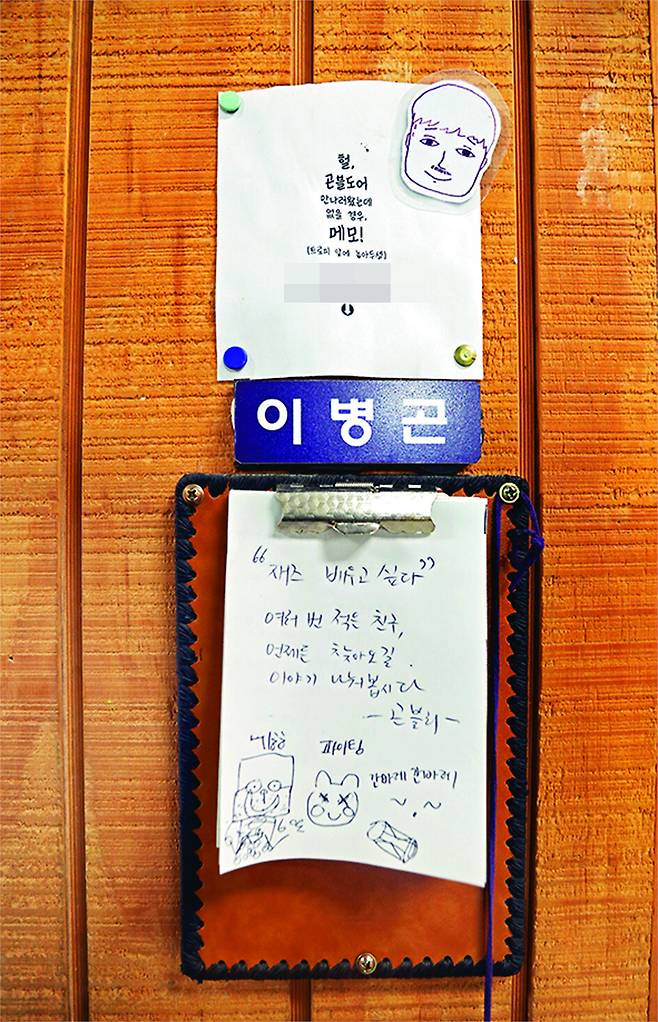 헐,
곤블도어
만나러왔는데
없을 경우,
메모!
(트로피 앞에 놓아두셈)
이병곤
"재즈 배우고 싶다"
여러 번 적은 친구,
언제든 찾아오길.
이야기 나눠봅시다
-곤블리-
네ㅎㅎ
파이팅
간바레 간바레
~.~